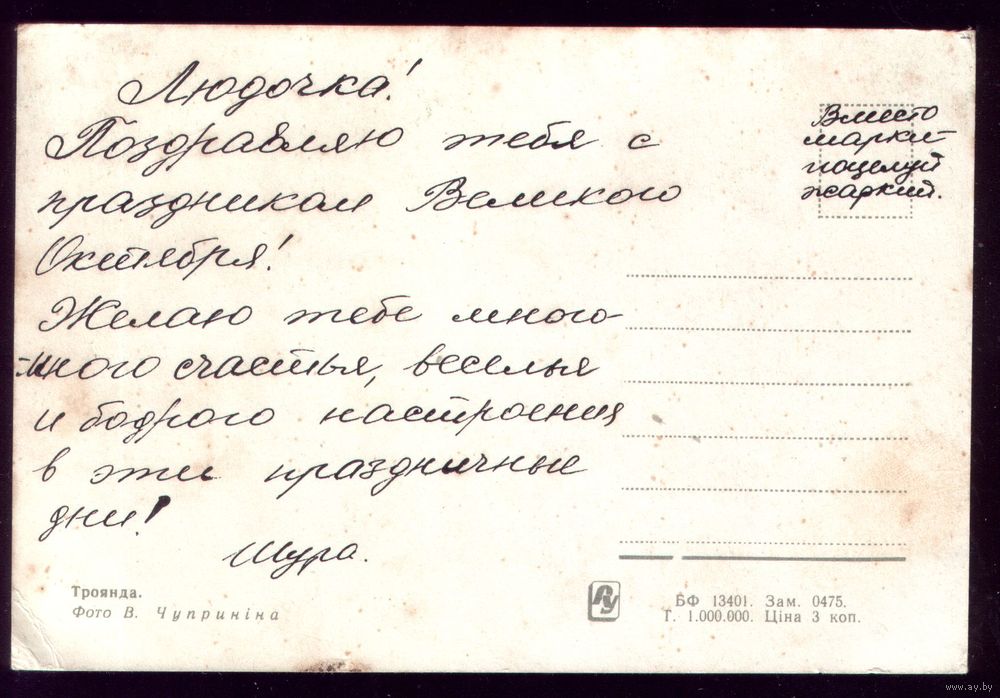 Людочка!
Поздравляю тебя с
праздником Великого
Октября!
Желаю тебе много-
-много счастья, веселья
и бодрого настроения
в эти праздничные
дни!
Шура.
Вместо
марки–
поцелуй
жаркий.
Троянда.
Фото В. Чуприніна
БФ 13401. Зам. 0475.
Т. 1.000.000. Ціна 3 коп.
www.ay.by